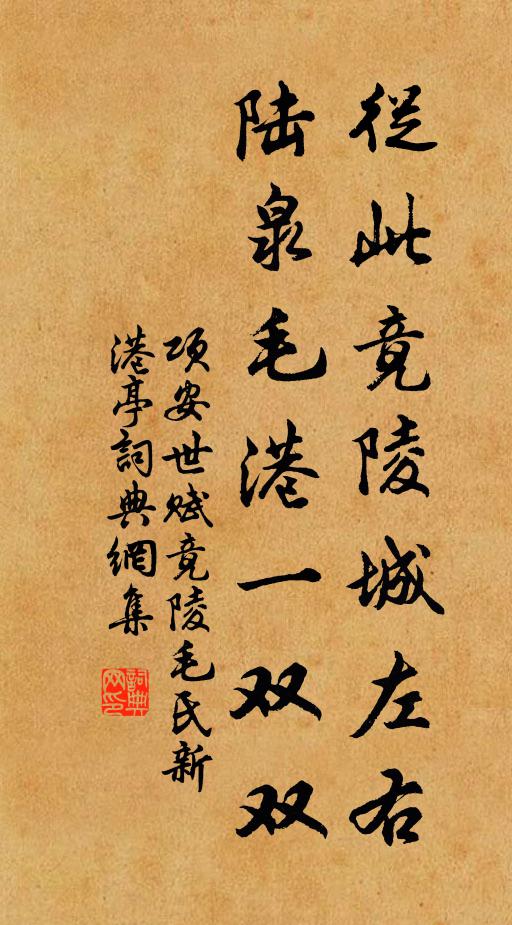 從此竟陵城左右
陆泉毛港一双双
项安世赋竟陵毛氏新
港亭詞典網集
詞典
网印